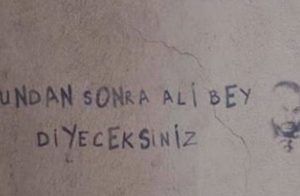 UNDAN SONRA ALİ BEY
DİYECEKSİNİZ